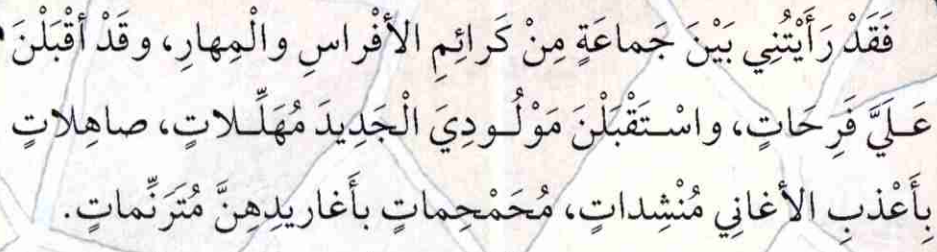 فَقَدْ رَأَيْتُنِي بَيْنَ جَماعَةٍ مِنْ كَرائِمِ الأَفْراسِ والْمِهارِ، وقَدْ أَقْبَلْنَ
عَلَيَّ فَرِحَاتٍ، واسْتَقْبَلْنَ مَوْلُودِيَ الْجَدِيدَ مُهَلِّلاتٍ، صاهِلاتٍ
بِأَعْذبِ الأَغانِي مُنْشِداتٍ، مُحَمْحِماتٍ بأَغاريدِهِنَّ مُتَرَنِّماتٍ.